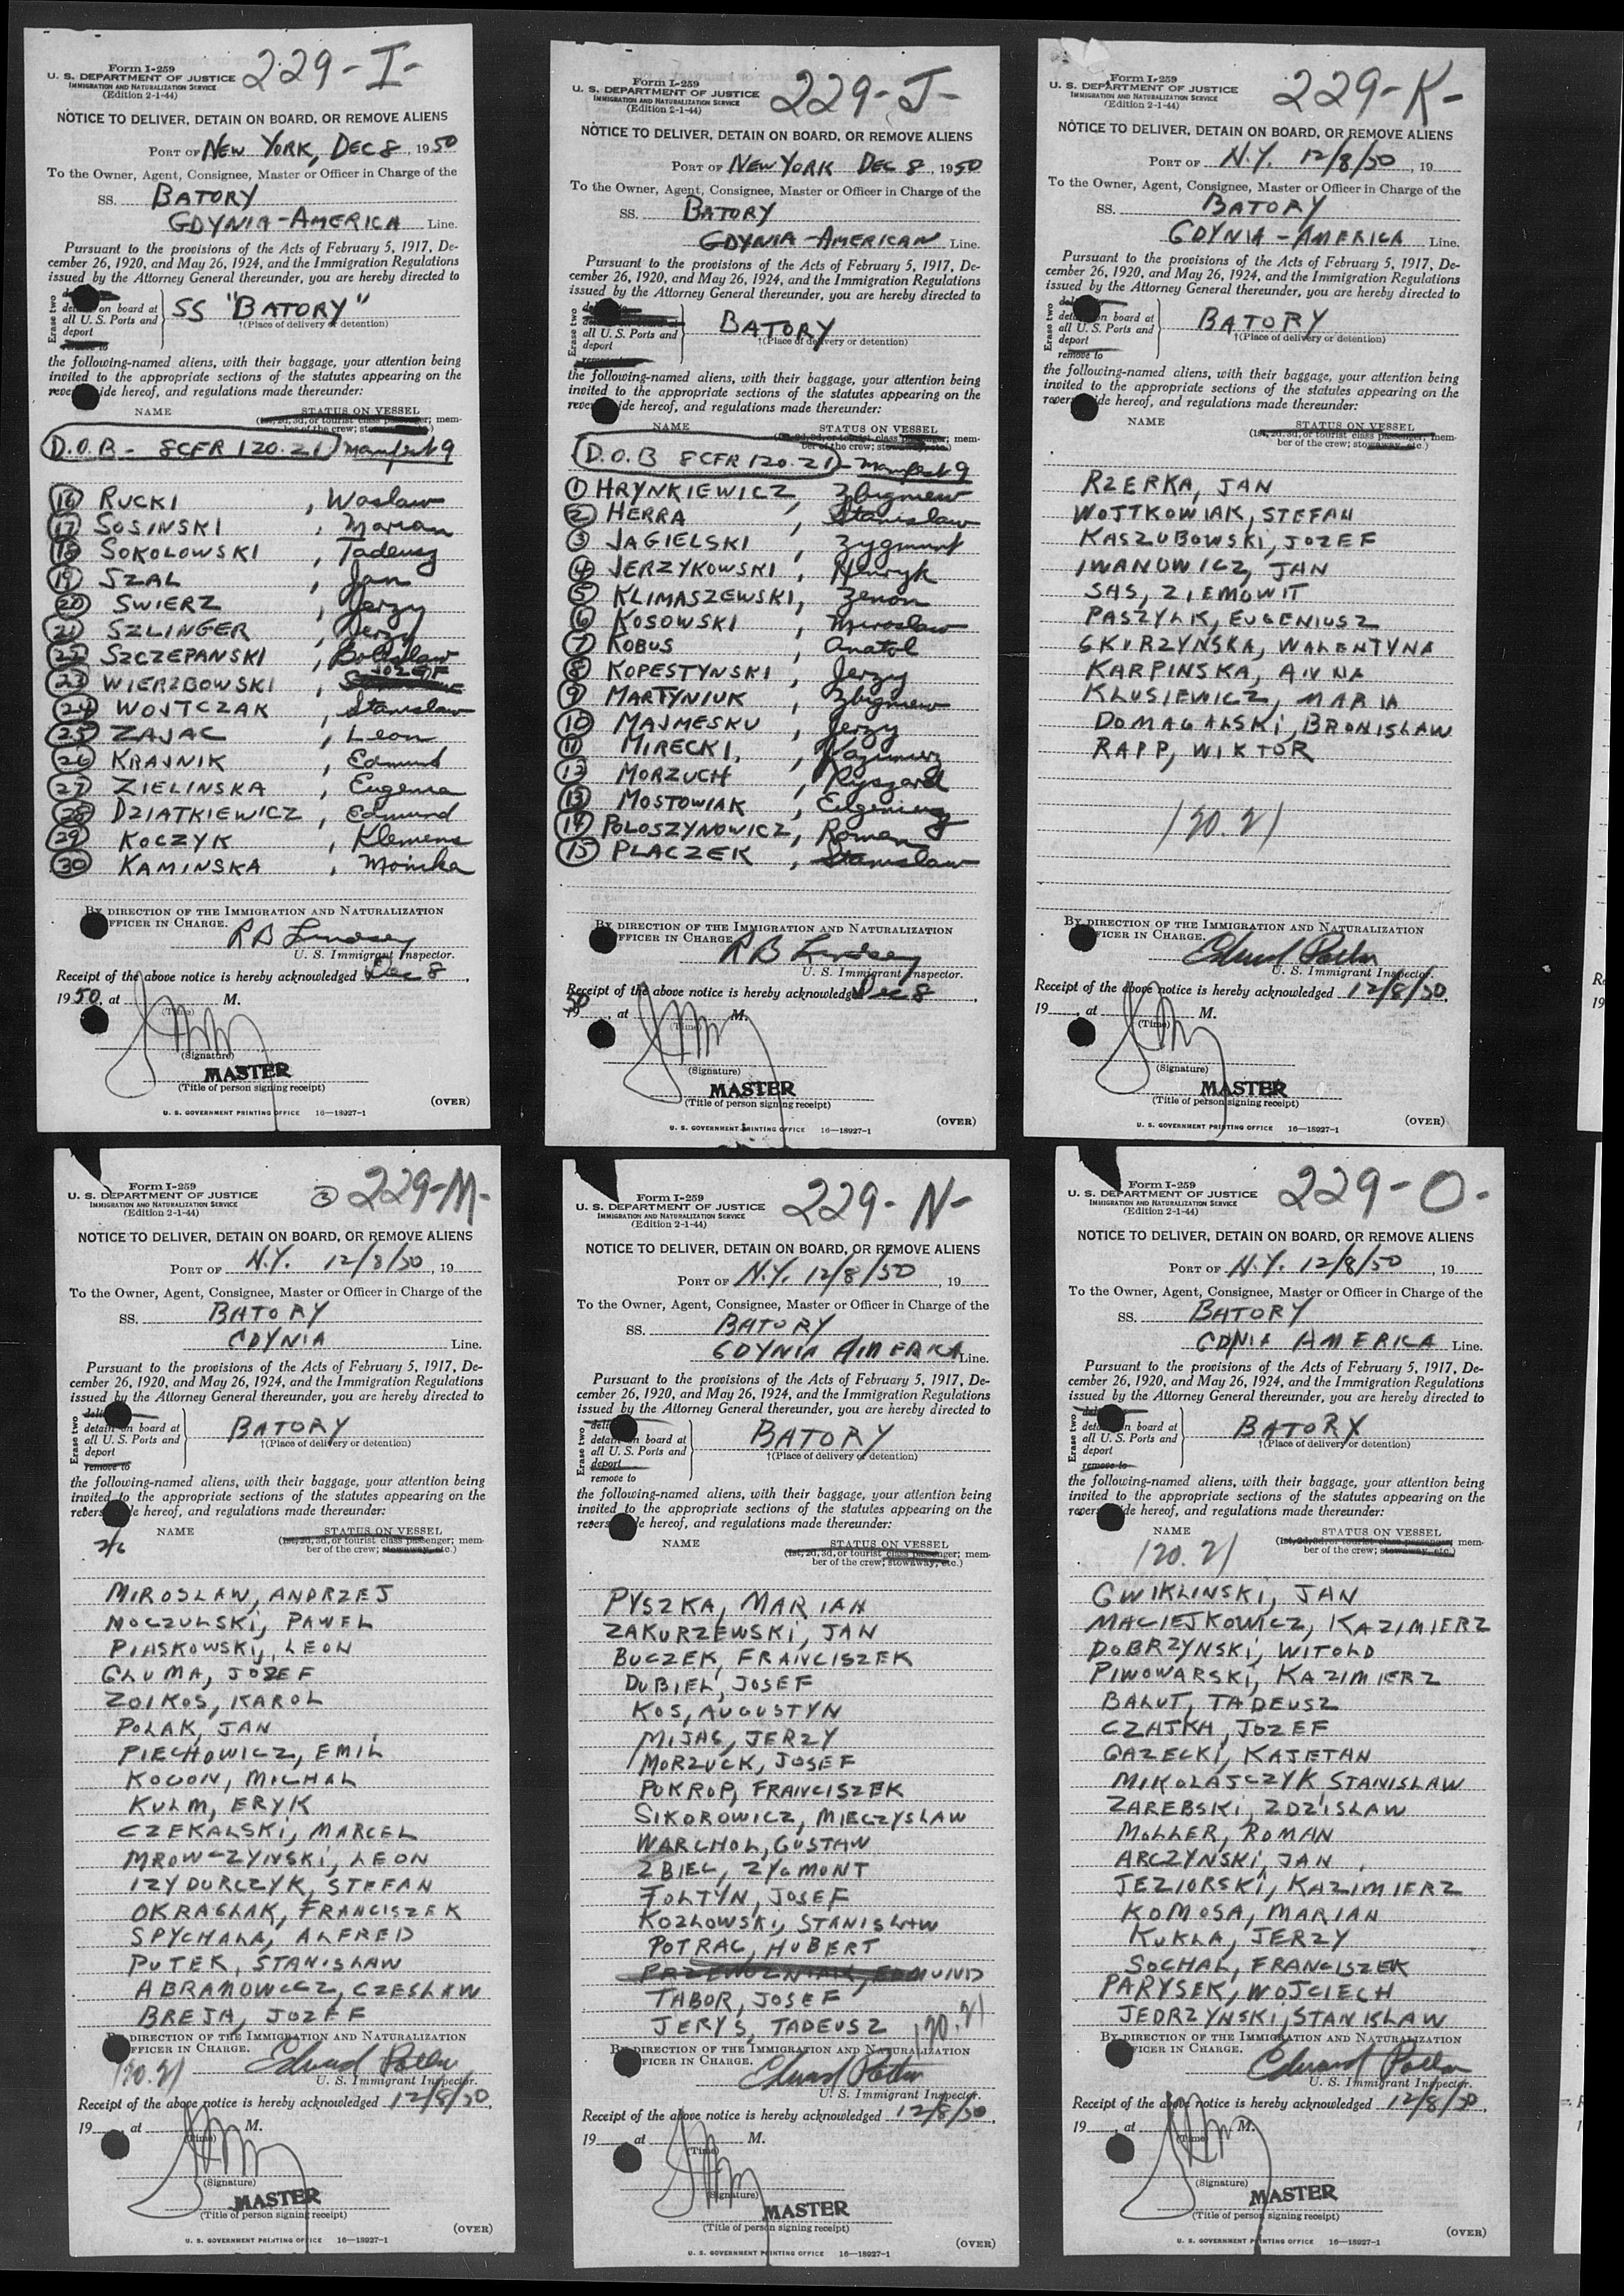 Form I-259
U. S. DEPARTMENT OF JUSTICE
IMMIGRATION AND NATURALIZATION SERVICE
(Edition 2-1-44)
229-I-
NOTICE TO DELIVER, DETAIN ON BOARD, OR REMOVE ALIENS
PORT OF NEW YORK, DEC 8, 1950
To the Owner, Agent, Consignee, Master or Officer in Charge of the
SS. BATORY
GDYNIA-AMERICA Line.
Pursuant to the provisions of the Acts of February 5, 1917, De-
cember 26, 1920, and May 26, 1924, and the Immigration Regulations
issued by the Attorney General thereunder, you are hereby directed to
Erase two
on board at
all U. S. Ports and
deport
remove to
SS "BATORY"
†(Place of delivery or detention)
the following-named aliens, with their baggage, your attention being
invited to the appropriate sections of the statutes appearing on the
reve ide hereof, and regulations made thereunder:
NAME STATUS ON VESSEL
(1st, 2d, 3d, or tourist class passenger; mem-
ber of the crew;
D.O.B - 8CFR 120.21 Manifest 9
16 RUCKI, Waslaw
17 SOSINSKI, Marian
18 SOKOLOWSKI, Tadeusz
19 SZAL, Jan
20 SWIERZ, Jerzy
21 SZLINGER, Jerzy
22 SZCZEPANSKI, Boleslaw
23 WIERZBOWSKI, JOZEF
24 WOJTCZAK, Stanislaw
25 ZAJAC, Leon
26 KRAJNIK, Edmund
27 ZIELINSKA, Eugenia
28 DZIATKIEWICZ, Edmund
29 KOCZYK, Klemens
30 KAMINSKA, Monika
BY DIRECTION OF THE IMMIGRATION AND NATURALIZATION
OFFICER IN CHARGE.
R B Lindsey
U. S. Immigrant Inspector.
Receipt of the above notice is hereby acknowledged Dec 8,
1950, at M.
(Time)
(Signature)
MASTER
(Title of person signing receipt)
(OVER)
U. S. GOVERNMENT PRINTING OFFICE 16—18927-1
Form I-259
U. S. DEPARTMENT OF JUSTICE
IMMIGRATION AND NATURALIZATION SERVICE
(Edition 2-1-44)
229-J-
NOTICE TO DELIVER, DETAIN ON BOARD, OR REMOVE ALIENS
PORT OF NEW YORK DEC 8, 1950
To the Owner, Agent, Consignee, Master or Officer in Charge of the
SS. BATORY
GDYNIA-AMERICAN Line.
Pursuant to the provisions of the Acts of February 5, 1917, De-
cember 26, 1920, and May 26, 1924, and the Immigration Regulations
issued by the Attorney General thereunder, you are hereby directed to
Erase two
all U. S. Ports and
deport
remove to
BATORY
†(Place of delivery or detention)
the following-named aliens, with their baggage, your attention being
invited to the appropriate sections of the statutes appearing on the
rever ide hereof, and regulations made thereunder:
NAME STATUS ON VESSEL
(1st, 2d, 3d, or tourist class passenger; mem-
ber of the crew; stowaway, etc.)
D.O.B 8CFR 120.21 - Manifest 9
1 HRYNKIEWICZ, Zbigniew
2 HERRA, Stanislaw
3 JAGIELSKI, Zygmunt
4 JERZYKOWSKI, Henryk
5 KLIMASZEWSKI, Zenon
6 KOSOWSKI, Miroslaw
7 KOBUS, Anatol
8 KOPESTYNSKI, Jerzy
9 MARTYNIUK, Zbigniew
10 MAJMESKU, Jerzy
11 MIRECKI, Kazimierz
12 MORZUCH, Ryszard
13 MOSTOWIAK, Eugeniusz
14 POLOSZYNOWICZ, Roman
15 PLACZEK, Stanislaw
BY DIRECTION OF THE IMMIGRATION AND NATURALIZATION
OFFICER IN CHARGE.
R B Lindsey
U. S. Immigrant Inspector.
Receipt of the above notice is hereby acknowledged Dec 8,
1950, at M.
(Time)
(Signature)
MASTER
(Title of person signing receipt)
(OVER)
U. S. GOVERNMENT PRINTING OFFICE 16—18927-1
Form I-259
U. S. DEPARTMENT OF JUSTICE
IMMIGRATION AND NATURALIZATION SERVICE
(Edition 2-1-44)
229-K-
NOTICE TO DELIVER, DETAIN ON BOARD, OR REMOVE ALIENS
PORT OF N.Y. 12/8/50, 19
To the Owner, Agent, Consignee, Master or Officer in Charge of the
SS. BATORY
GDYNIA-AMERICA Line.
Pursuant to the provisions of the Acts of February 5, 1917, De-
cember 26, 1920, and May 26, 1924, and the Immigration Regulations
issued by the Attorney General thereunder, you are hereby directed to
Erase two
detain on board at
all U. S. Ports and
deport
remove to
BATORY
†(Place of delivery or detention)
the following-named aliens, with their baggage, your attention being
invited to the appropriate sections of the statutes appearing on the
rever ide hereof, and regulations made thereunder:
NAME STATUS ON VESSEL
(1st, 2d, 3d, or tourist class passenger; mem-
ber of the crew; stowaway, etc.)
RZERKA, JAN
WOJTKOWIAK, STEFAN
KASZUBOWSKI, JOZEF
IWANOWICZ, JAN
SAS, ZIEMOWIT
PASZYLK, EUGENIUSZ
SKURZYNSKA, WALENTYNA
KARPINSKA, ANNA
KLUSIEWICZ, MARIA
DOMAGALSKI, BRONISLAW
RAPP, WIKTOR
120.21
BY DIRECTION OF THE IMMIGRATION AND NATURALIZATION
OFFICER IN CHARGE.
Edward Potter
U. S. Immigrant Inspector.
Receipt of the above notice is hereby acknowledged 12/8/50,
19, at M.
(Time)
(Signature)
MASTER
(Title of person signing receipt)
(OVER)
U. S. GOVERNMENT PRINTING OFFICE 16—18927-1
Form I-259
U. S. DEPARTMENT OF JUSTICE
IMMIGRATION AND NATURALIZATION SERVICE
(Edition 2-1-44)
3 229-M-
NOTICE TO DELIVER, DETAIN ON BOARD, OR REMOVE ALIENS
PORT OF N.Y. 12/8/50, 19
To the Owner, Agent, Consignee, Master or Officer in Charge of the
SS. BATORY
GDYNIA Line.
Pursuant to the provisions of the Acts of February 5, 1917, De-
cember 26, 1920, and May 26, 1924, and the Immigration Regulations
issued by the Attorney General thereunder, you are hereby directed to
Erase two
detain on board at
all U. S. Ports and
deport
remove to
BATORY
†(Place of delivery or detention)
the following-named aliens, with their baggage, your attention being
invited to the appropriate sections of the statutes appearing on the
revers e hereof, and regulations made thereunder:
NAME STATUS ON VESSEL
(1st, 2d, 3d, or tourist class passenger; mem-
ber of the crew; stowaway, etc.)
MIROSLAW, ANDRZEJ
MOCZULSKI, PAWEL
PIASKOWSKI, LEON
GLUMA, JOZEF
ZOIKOS, KAROL
POLAK, JAN
PIECHOWICZ, EMIL
KOGON, MICHAL
KULM, ERYK
CZEKALSKI, MARCEL
MROWCZYNSKI, LEON
IZYDORCZYK, STEFAN
OKRAGLAK, FRANCISZEK
SPYCHALA, ALFRED
PUTEK, STANISLAW
ABRAMOWICZ, CZESLAW
BREJA, JOZEF
BY DIRECTION OF THE IMMIGRATION AND NATURALIZATION
OFFICER IN CHARGE.
120.21 Edward Potter
U. S. Immigrant Inspector.
Receipt of the above notice is hereby acknowledged 12/8/50,
19, at M.
(Time)
(Signature)
MASTER
(Title of person signing receipt)
(OVER)
U. S. GOVERNMENT PRINTING OFFICE 16—18927-1
Form I-259
U. S. DEPARTMENT OF JUSTICE
IMMIGRATION AND NATURALIZATION SERVICE
(Edition 2-1-44)
229-N-
NOTICE TO DELIVER, DETAIN ON BOARD, OR REMOVE ALIENS
PORT OF N.Y. 12/8/50, 19
To the Owner, Agent, Consignee, Master or Officer in Charge of the
SS. BATORY
GDYNIA AMERICA Line.
Pursuant to the provisions of the Acts of February 5, 1917, De-
cember 26, 1920, and May 26, 1924, and the Immigration Regulations
issued by the Attorney General thereunder, you are hereby directed to
Erase two
detain on board at
all U. S. Ports and
deport
remove to
BATORY
†(Place of delivery or detention)
the following-named aliens, with their baggage, your attention being
invited to the appropriate sections of the statutes appearing on the
revers e hereof, and regulations made thereunder:
NAME STATUS ON VESSEL
(1st, 2d, 3d, or tourist class passenger; mem-
ber of the crew; stowaway, etc.)
PYSZKA, MARIAN
ZAKURZEWSKI, JAN
BUCZEK, FRANCISZEK
DUBIEL, JOSEF
KOS, AUGUSTYN
MIJAS, JERZY
MORZUCK, JOSEF
POKROP, FRANCISZEK
SIKOROWICZ, MIECZYSLAW
WARCHOL, GUSTAW
ZBIEC, ZYGMONT
FOLTYN, JOSEF
KOZLOWSKI, STANISLAW
POTRAC, HUBERT
PRZEWOZNIAK, EDMUND
TABOR, JOSEF
JERYS, TADEUSZ 120.21
BY DIRECTION OF THE IMMIGRATION AND NATURALIZATION
OFFICER IN CHARGE.
Edward Potter
U. S. Immigrant Inspector.
Receipt of the above notice is hereby acknowledged 12/8/50,
19, at M.
(Time)
(Signature)
MASTER
(Title of person signing receipt)
(OVER)
U. S. GOVERNMENT PRINTING OFFICE 16—18927-1
Form I-259
U. S. DEPARTMENT OF JUSTICE
IMMIGRATION AND NATURALIZATION SERVICE
(Edition 2-1-44)
229-O-
NOTICE TO DELIVER, DETAIN ON BOARD, OR REMOVE ALIENS
PORT OF N.Y. 12/8/50, 19
To the Owner, Agent, Consignee, Master or Officer in Charge of the
SS. BATORY
GDNIA AMERICA Line.
Pursuant to the provisions of the Acts of February 5, 1917, De-
cember 26, 1920, and May 26, 1924, and the Immigration Regulations
issued by the Attorney General thereunder, you are hereby directed to
Erase two
detain on board at
all U. S. Ports and
deport
remove to
BATORY
†(Place of delivery or detention)
the following-named aliens, with their baggage, your attention being
invited to the appropriate sections of the statutes appearing on the
rever ide hereof, and regulations made thereunder:
NAME STATUS ON VESSEL
(1st, 2d, 3d, or tourist class passenger; mem-
ber of the crew; stowaway, etc.)
120.21
CWIKLINSKI, JAN
MACIEJKOWICZ, KAZIMIERZ
DOBRZYNSKI, WITOLD
PIWOWARSKI, KAZIMIERZ
BALUT, TADEUSZ
CZAJKA, JOZEF
GAZECKI, KAJETAN
MIKOLAJCZYK STANISLAW
ZAREBSKI, ZDZISLAW
MOLLER, ROMAN
ARCZYNSKI, JAN
JEZIORSKI, KAZIMIERZ
KOMOSA, MARIAN
KUKLA, JERZY
SOCHAL, FRANCISZEK
PARYSEK, WOJCIECH
JEDRZYNSKI, STANISLAW
BY DIRECTION OF THE IMMIGRATION AND NATURALIZATION
OFFICER IN CHARGE.
Edward Potter
U. S. Immigrant Inspector.
Receipt of the above notice is hereby acknowledged 12/8/50,
19, at M.
(Time)
(Signature)
MASTER
(Title of person signing receipt)
(OVER)
U. S. GOVERNMENT PRINTING OFFICE 16—18927-1